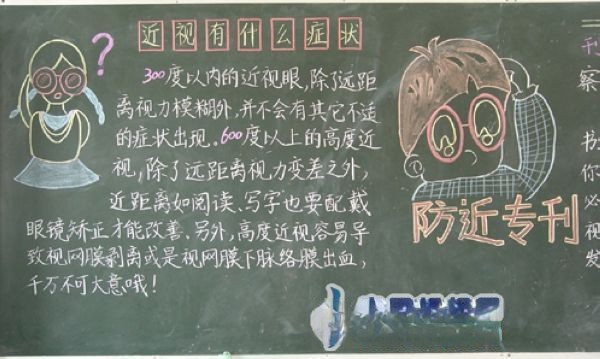 近视有什么症状
?
300度以内的近视眼,除了远距
离视力模糊外,并不会有其它不适
的症状出现。600度以上的高度近
视,除了远距离视力变差之外,
近距离如阅读、写字也要配戴
眼镜矫正才能改善。另外,高度近视容易导
致视网膜剥离或是视网膜下脉络膜出血,
千万不可大意哦!
防近专刊
刊
察
你
必
视
发